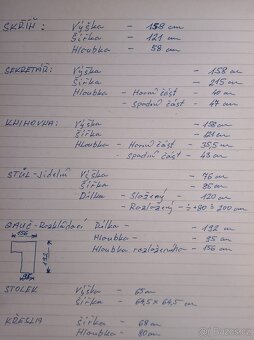 SKŘÍŇ: Výška - 158 cm
Šířka - 121 cm
Hloubka - 58 cm
SEKRETÁŘ: Výška - 158 cm
Šířka - 215 cm
Hloubka - Horní část - 40 cm
- spodní část - 47 cm
KNIHOVNA: Výška - 158 cm
Šířka - 121 cm
Hloubka - Horní část - 35,5 cm
- spodní část - 43 cm
STŮL-Jídelní Výška - 76 cm
Šířka - 85 cm
Délka - Složený - 120 cm
- Rozložený - ÷ +80 = 200 cm
GAUČ-Rozkládací Délka - 192 cm
Hloubka - 95 cm
Hloubka rozloženého - 156 cm
156
192
STOLEK Výška - 65 cm
Šířka - 64,5 x 64,5 cm
KŘESLA Šířka - 68 cm
Hloubka - 80 cm